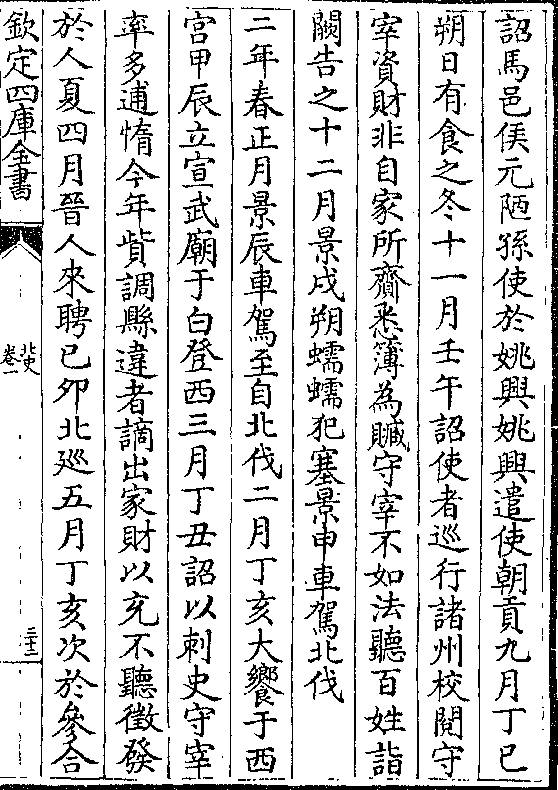 詔馬邑侯元陋孫使於姚興姚興遣使朝貢九月丁巳
朔日有食之冬十一月壬午詔使者巡行諸州校閱守
宰資財非自家所齎悉簿為贓守宰不如法聽百姓詣
闕告之十二月景戌朔蠕蠕犯塞景申車駕北伐
二年春正月景辰車駕至自北伐二月丁亥大饗于西
宮甲辰立宣武廟于白登西三月丁丑詔以刺史守宰
率多逋惰今年貲調縣違者謫出家財以充不聽徵發
於人夏四月晉人來聘已夘北廵五月丁亥次於參合
欽定四庫全書
北史
卷一
三十三